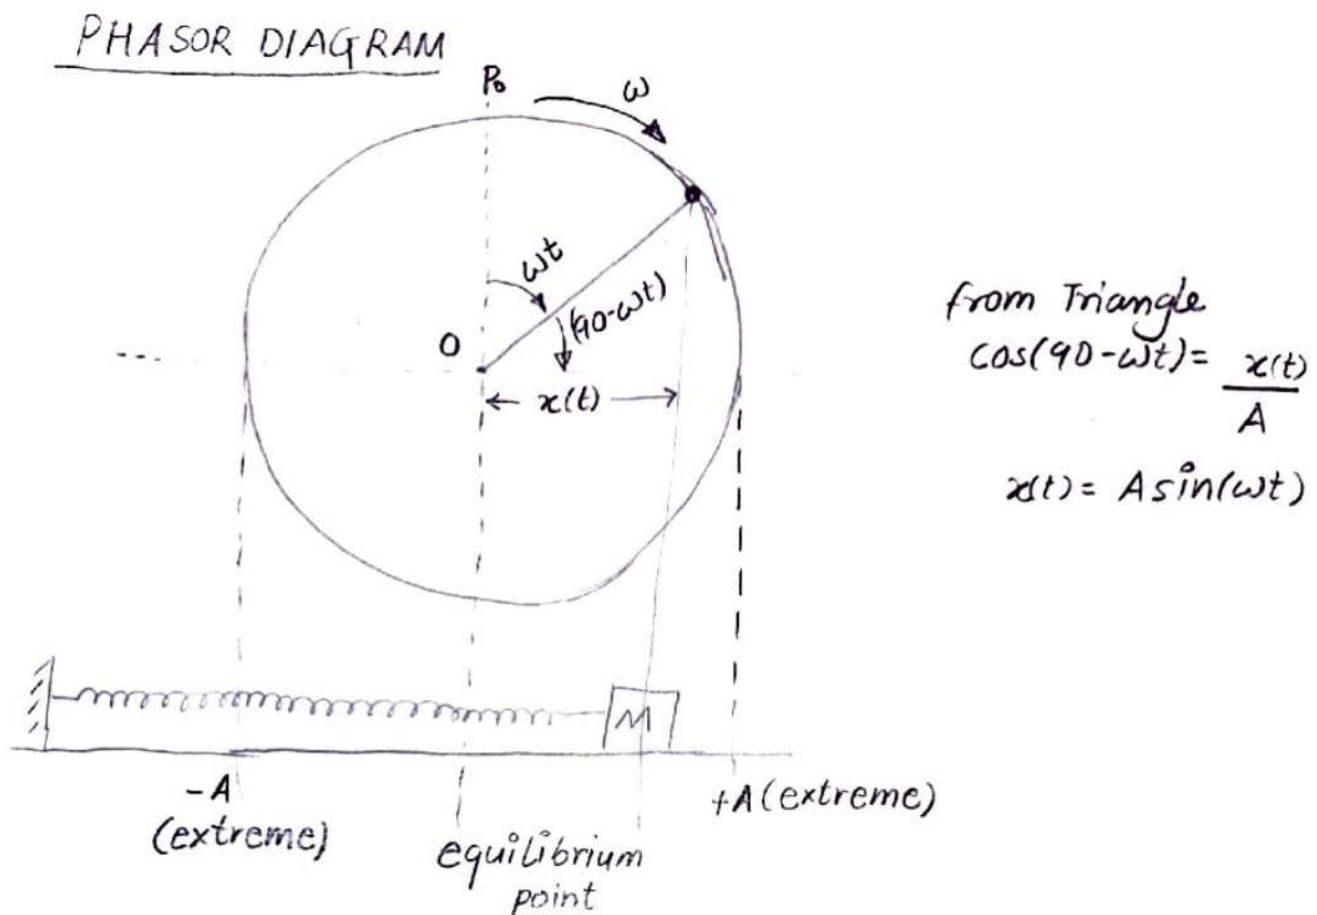 PHASOR DIAGRAM
P₀
ω
ωt
(90-ωt)
O
x(t)
from Triangle
cos(90-ωt) = x(t)
A
x(t) = A sin(ωt)
M
-A
(extreme)
+A (extreme)
equilibrium
point